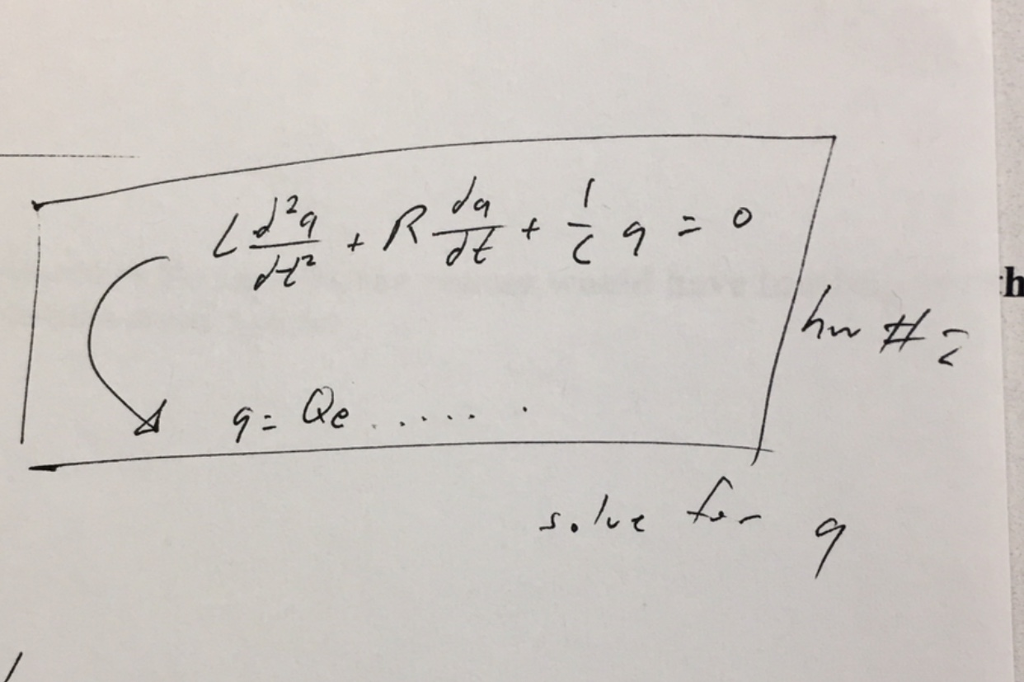 L d²q/dt² + R dq/dt + 1/C q = 0
q = Qe . . . . . .
hw # 2
solve for q
h